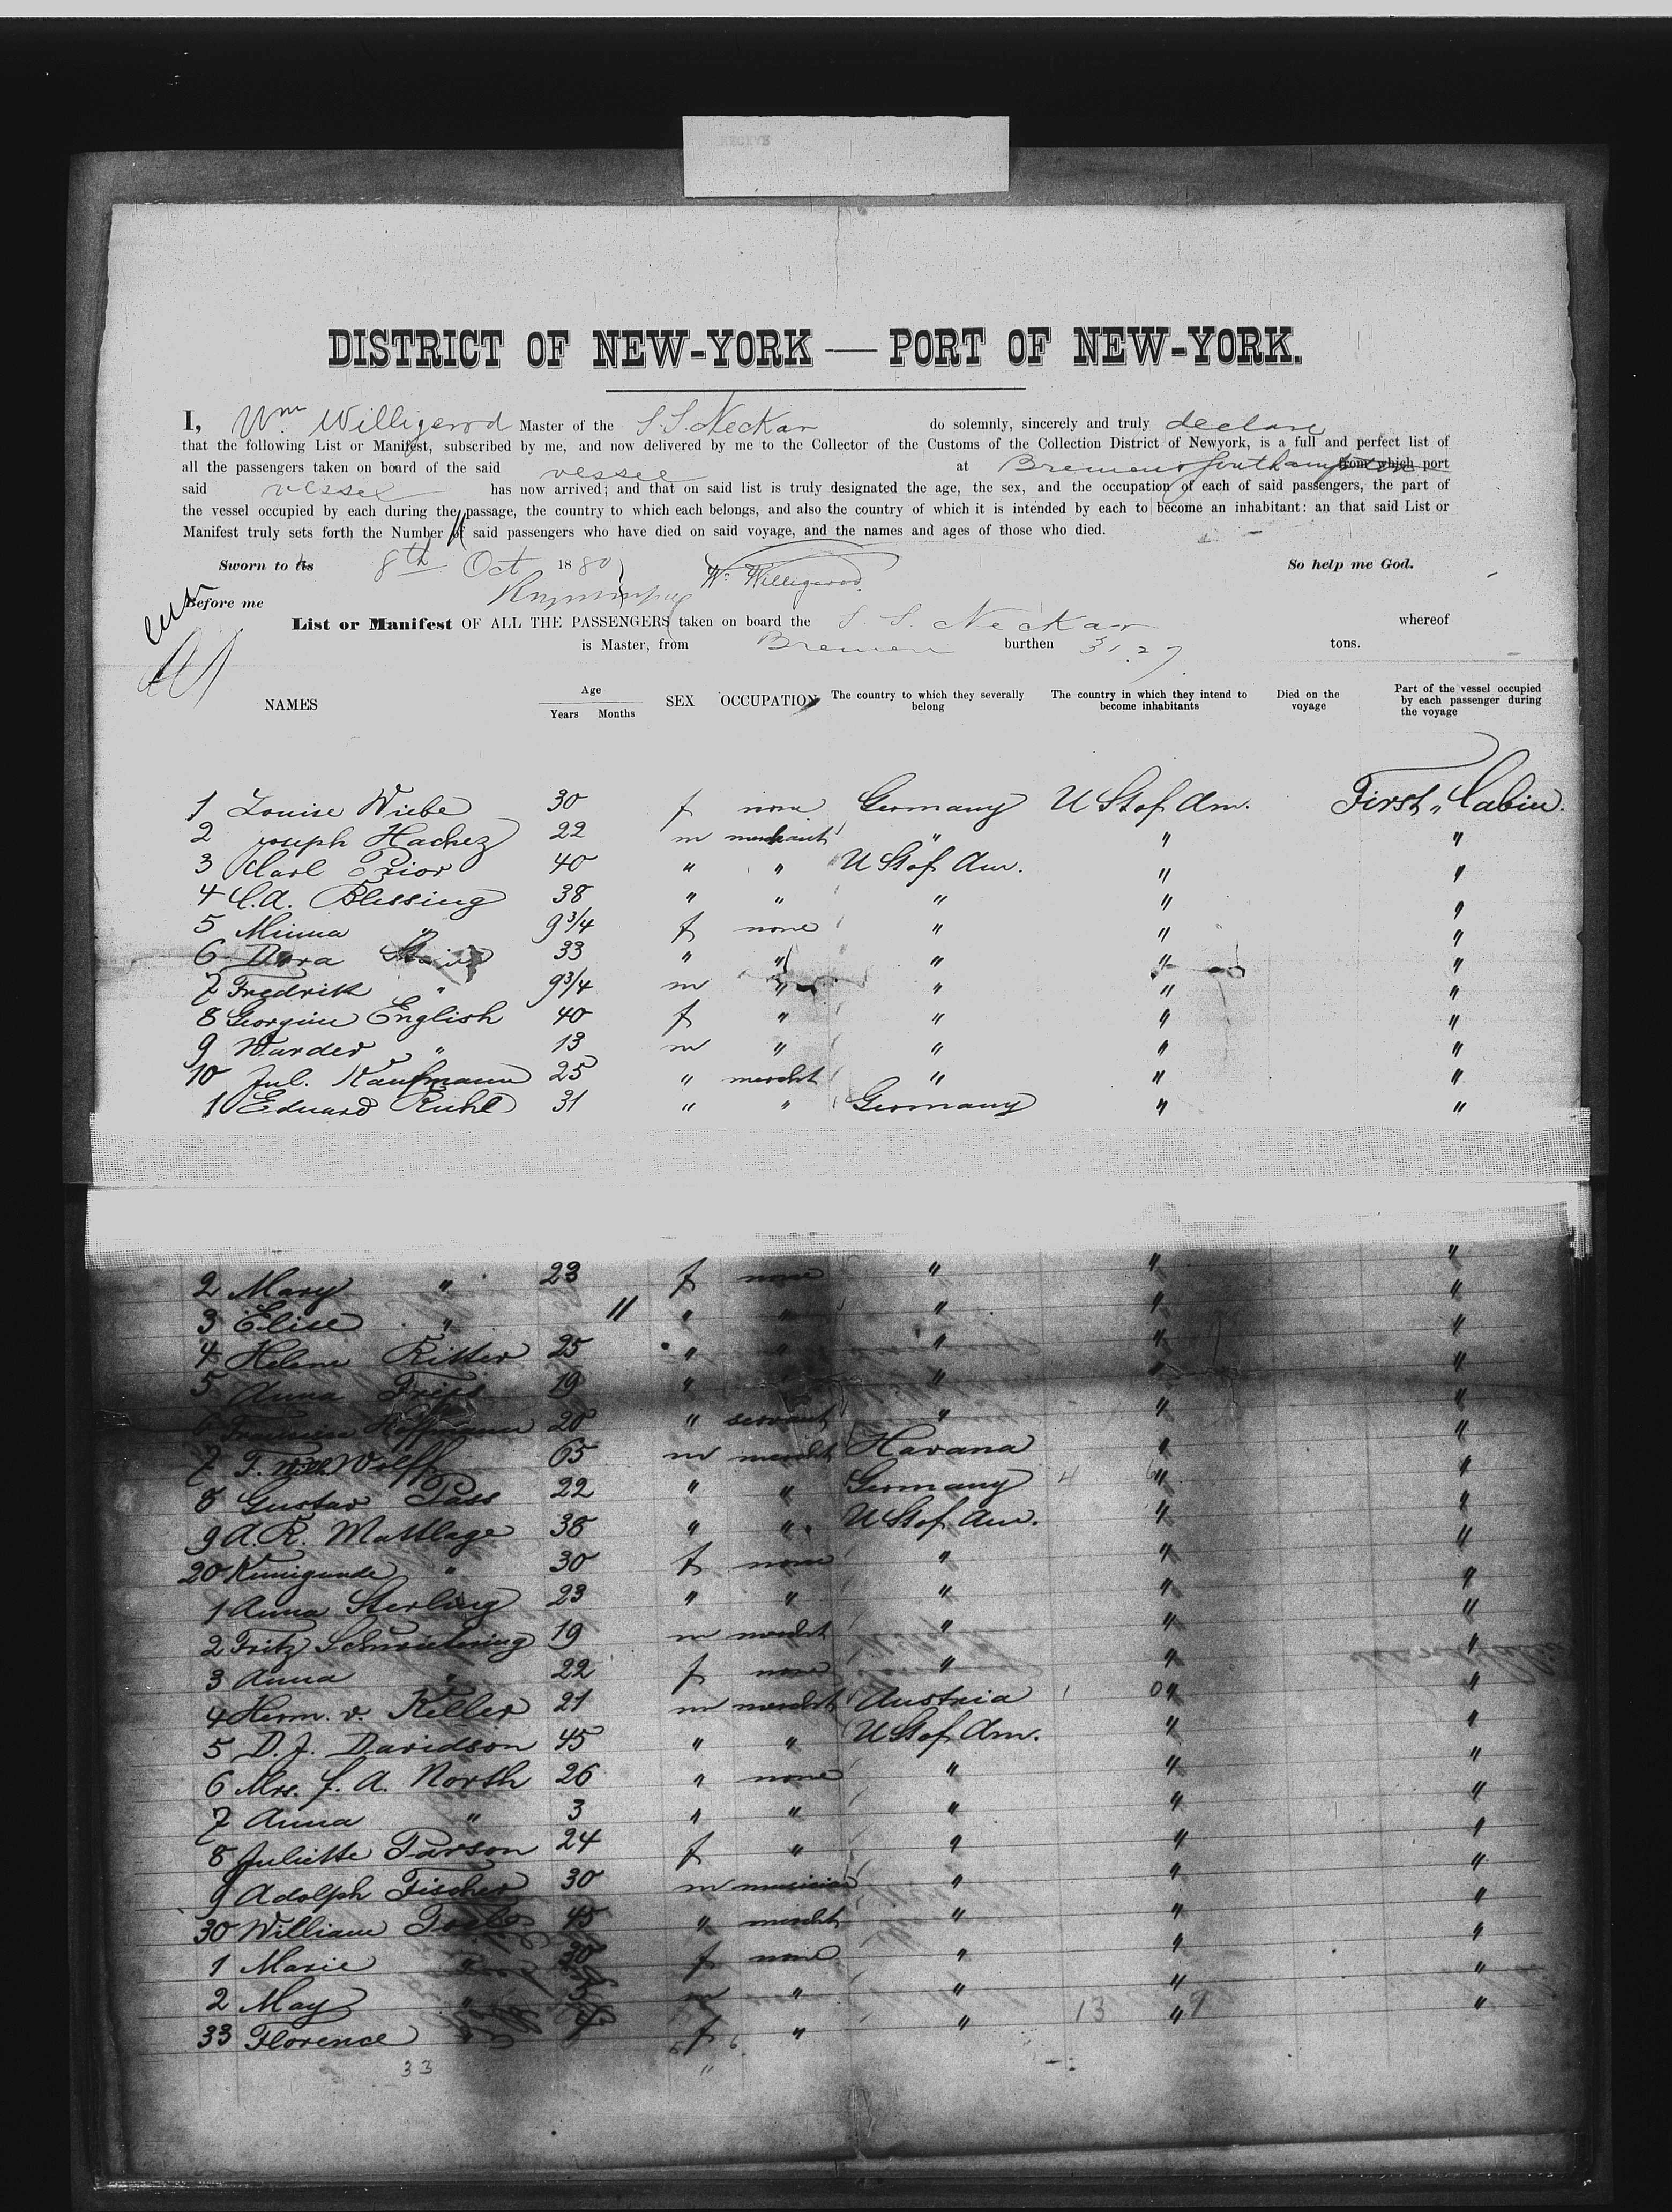 DISTRICT OF NEW-YORK — PORT OF NEW-YORK.
I, Wm Willigerod Master of the S.S. Neckar do solemnly, sincerely and truly declare
that the following List or Manifest, subscribed by me, and now delivered by me to the Collector of the Customs of the Collection District of Newyork, is a full and perfect list of
all the passengers taken on board of the said vessel at Bremen & Southampton from which port
said vessel has now arrived; and that on said list is truly designated the age, the sex, and the occupation of each of said passengers, the part of
the vessel occupied by each during the passage, the country to which each belongs, and also the country of which it is intended by each to become an inhabitant: an that said List or
Manifest truly sets forth the Number of said passengers who have died on said voyage, and the names and ages of those who died.
Sworn to 8th Oct 1880 W. Willigerod. So help me God.
Before me
List or Manifest OF ALL THE PASSENGERS taken on board the S. S. Neckar whereof
is Master, from Bremen burthen 3127 tons.
NAMES Age Years Months SEX OCCUPATION The country to which they severally belong The country in which they intend to become inhabitants Died on the voyage Part of the vessel occupied by each passenger during the voyage
1 Louise Wiebe 30 f none Germany U St of Am. First Cabin.
2 Joseph Hachez 22 m merchant " " "
3 Carl Prior 40 " " U St of Am. " "
4 C.A. Blessing 38 " " " " "
5 Minna " 9 3/4 f none " " "
6 Dora 33 " " " " "
7 Fredrik " 9 3/4 m " " " "
8 Georgine English 40 f " " " "
9 Warder " 13 m " " " "
10 Jul. Kaufmann 25 " mercht " " "
1 Eduard Ruhl 31 " " Germany " "
2 Mary " 23 f none " " "
3 Elise " 11 " " " " "
4 Helene Ritter 25 " " " " "
5 Anna Fries 19 " " " " "
6 Hoffmann 20 " servant " " "
7 T. Wilh. Wolff 65 m mercht Havana " "
8 Gustav Pass 22 " " Germany 4 " "
9 A. R. Mattlage 38 " " U St of Am. " "
20 Kunigunde " 30 f none " " "
1 Anna Sterling 23 " " " " "
2 Fritz Schwietering 19 m mercht " " "
3 Anna " 22 f none " " "
4 Herm. v. Keller 21 m mercht Austria 1 " "
5 D. J. Davidson 45 " " U St of Am. " "
6 Mrs. J. A. North 26 " none " " "
7 Anna " 3 " " " " "
8 Juliette Parson 24 f " " " "
9 Adolph Fischer 30 m musician " " "
30 William 45 " mercht " " "
1 Marie " 30 f none " " "
2 May " m " " " "
33 Florence " f " " 13 " 9 "
33